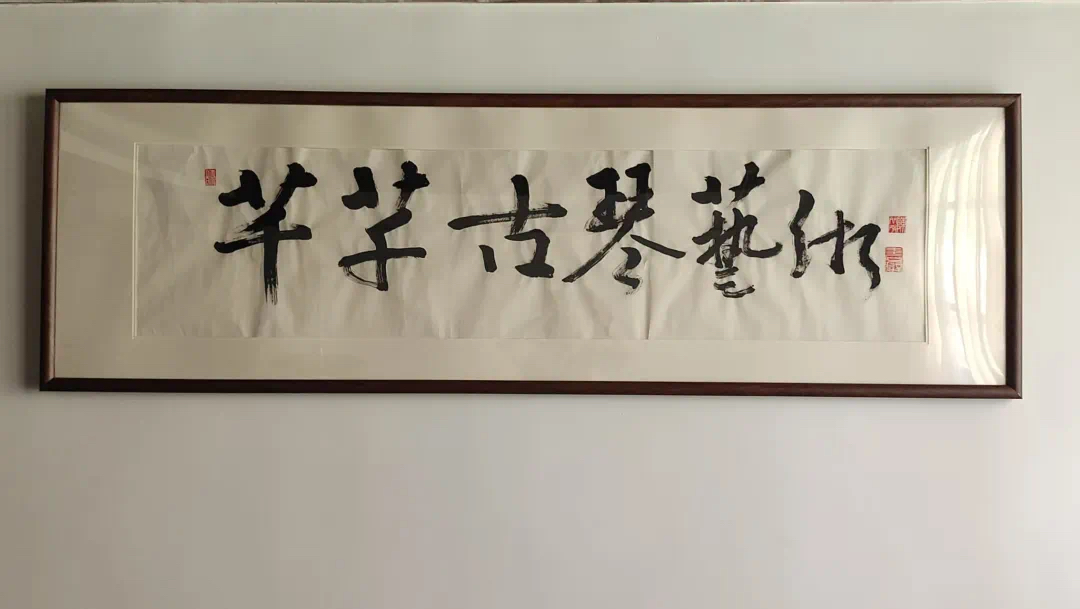 芊芊古琴藝術